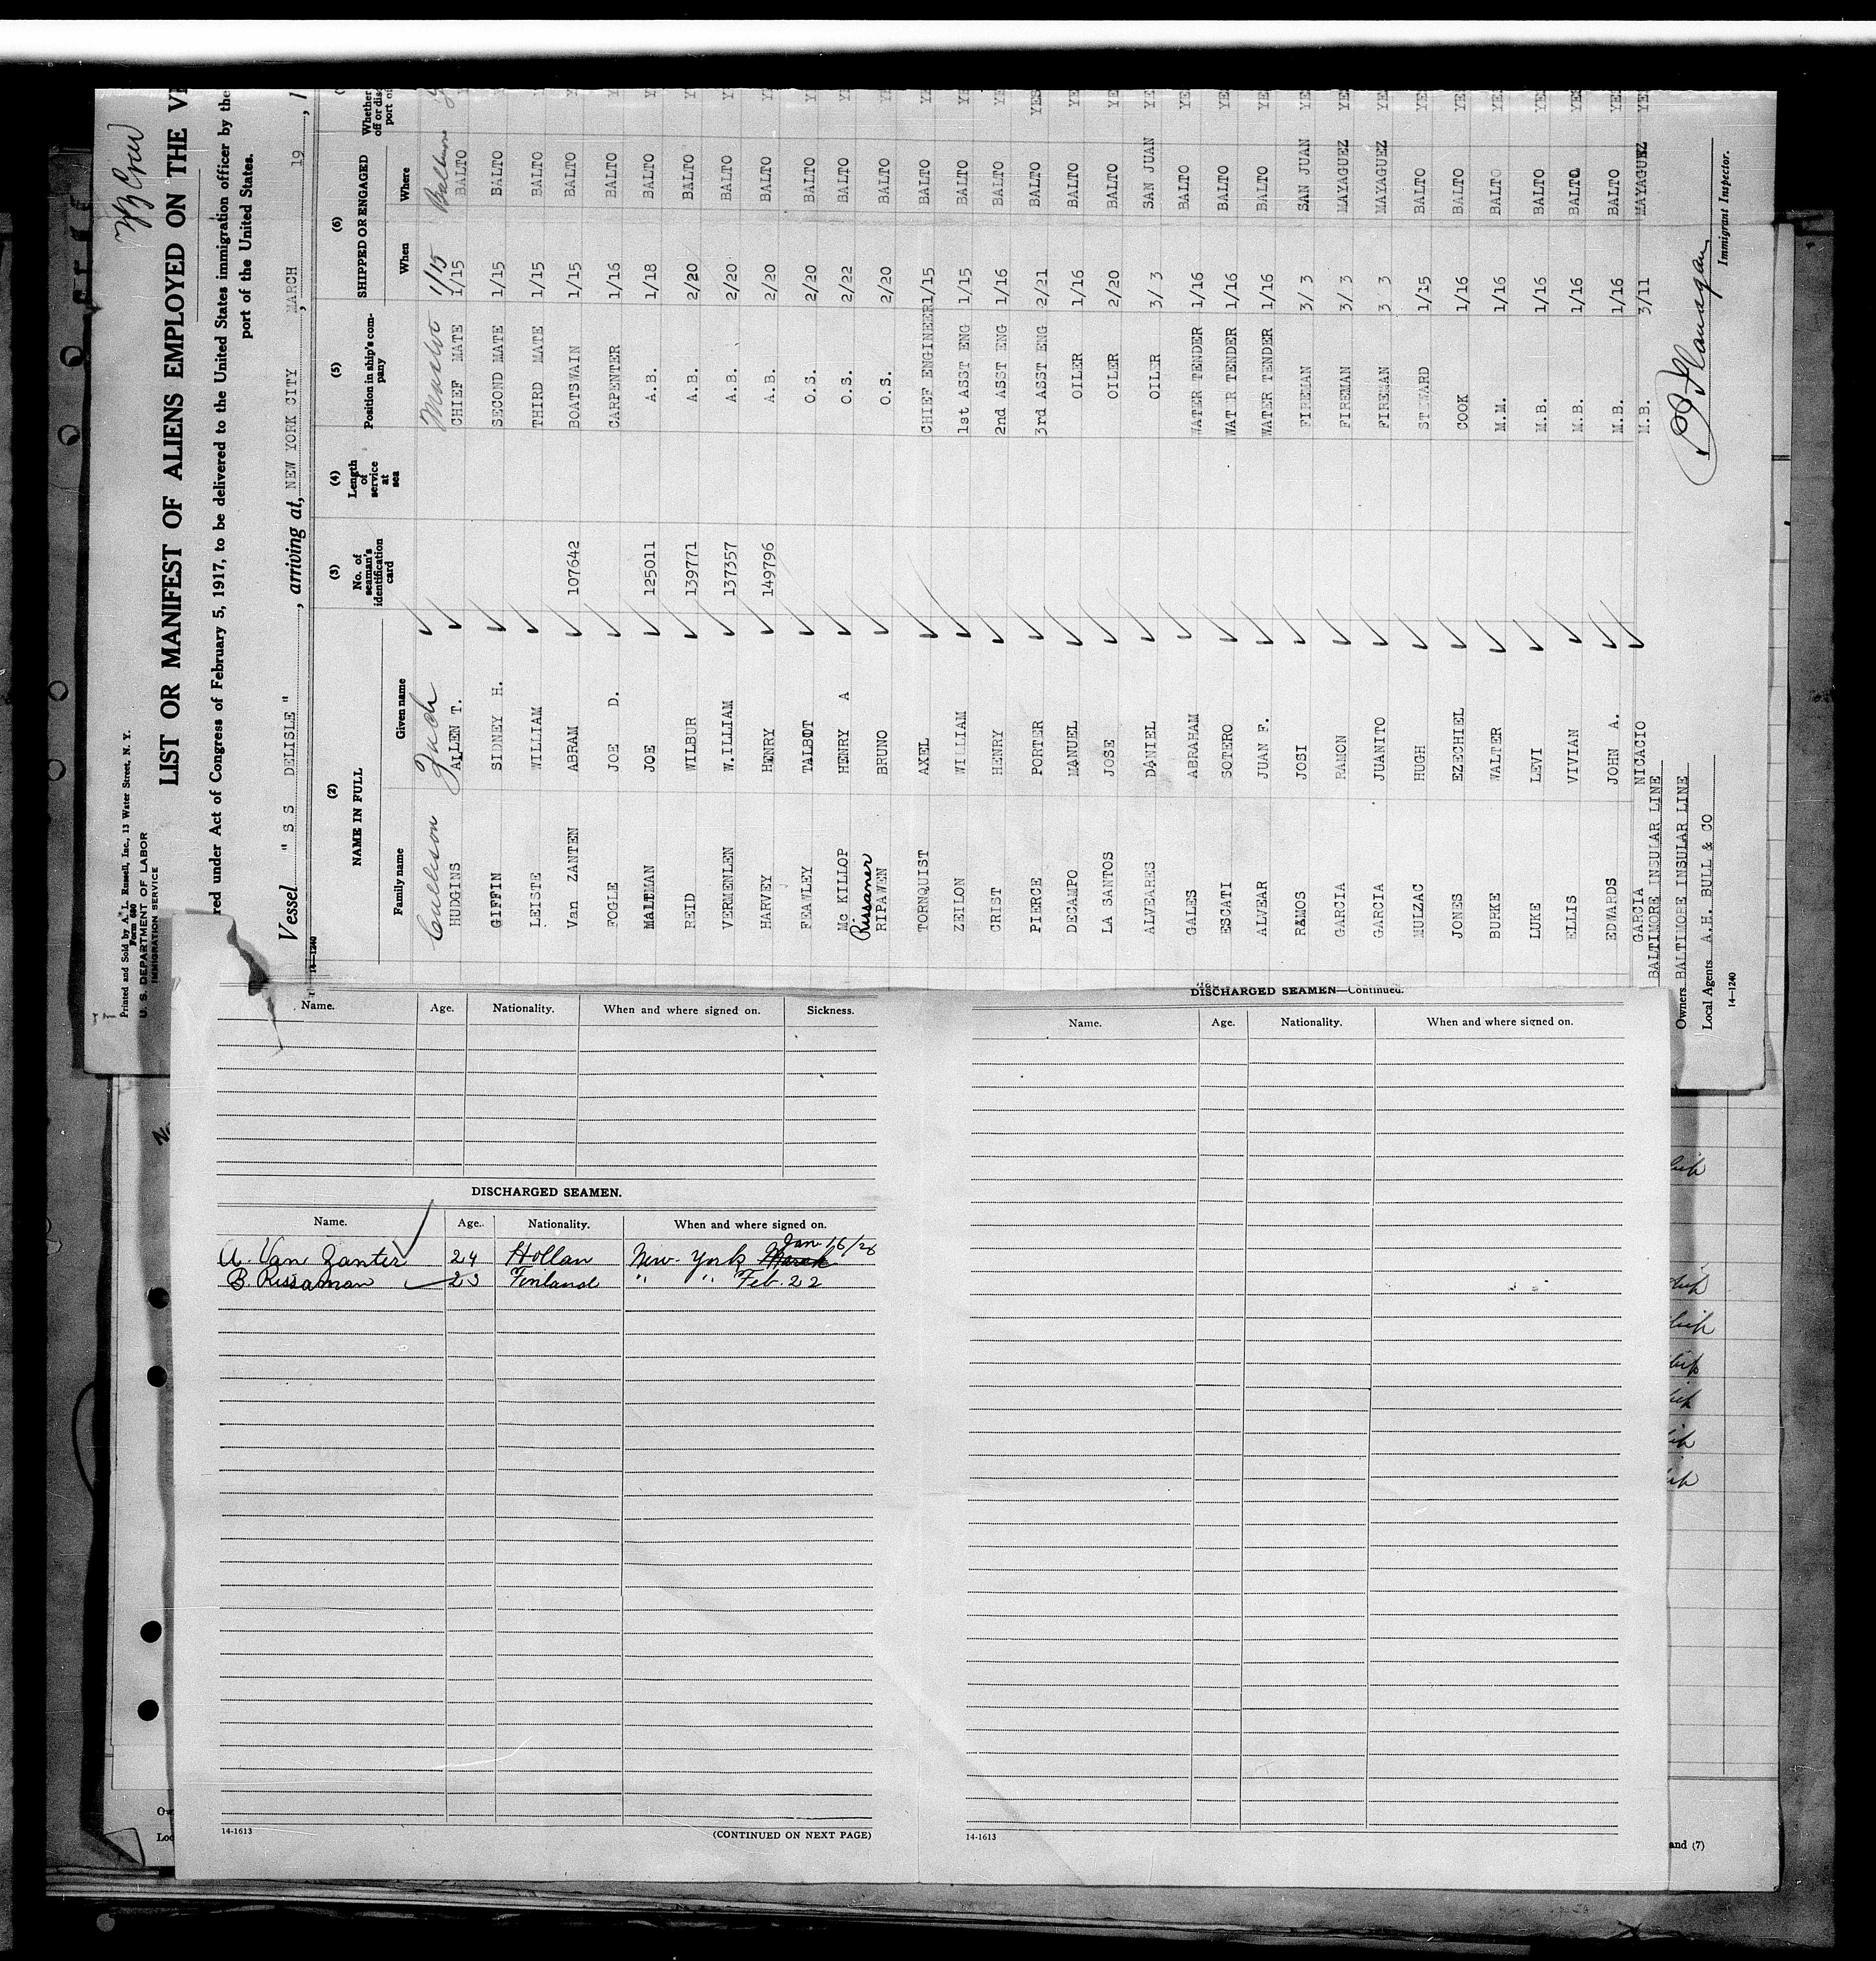 Printed and Sold by A. L. Russell, Inc., 13 Water Street, N. Y.
Form 680
U. S. DEPARTMENT OF LABOR
IMMIGRATION SERVICE
LIST OR MANIFEST OF ALIENS EMPLOYED ON THE
red under Act of Congress of February 5, 1917, to be delivered to the United States immigration officer by the
port of the United States.
Vessel " S S DELISLE " , arriving at, NEW YORK CITY MARCH , 19
14-1240
(2) (3) (4) (5) (6)
NAME IN FULL No. of seaman's identification card Length of service at sea Position in ship's company SHIPPED OR ENGAGED Whether
Family name Given name When Where
Zach 1/15
HUDGINS ALLEN T. CHIEF MATE 1/15 BALTO
GIFFIN SIDNEY H. SECOND MATE 1/15 BALTO
LEISTE WILLIAM THIRD MATE 1/15 BALTO
Van ZANTEN ABRAM 107642 BOATSWAIN 1/15 BALTO
FOGLE JOE D. CARPENTER 1/16 BALTO
MALTMAN JOE 125011 A.B. 1/18 BALTO
REID WILBUR 139771 A.B. 2/20 BALTO
VERMENLEN W.ILLIAM 137357 A.B. 2/20 BALTO
HARVEY HENRY 149796 A.B. 2/20 BALTO
FEAWLEY TALBOT O.S. 2/20 BALTO
Mc KILLOP HENRY A O.S. 2/22 BALTO
Rissaner
RIPAWEN BRUNO O.S. 2/20 BALTO
TORNQUIST AXEL CHIEF ENGINEER 1/15 BALTO
ZEILON WILLIAM 1st ASST ENG 1/15 BALTO
CRIST HENRY 2nd ASST ENG 1/16 BALTO
PIERCE PORTER 3rd ASST ENG 2/21 BALTO YES
DECAMPO MANUEL OILER 1/16 BALTO YES
LA SANTOS JOSE OILER 2/20 BALTO YES
ALVEARES DANIEL OILER 3/ 3 SAN JUAN YES
GALES ABRAHAM WATER TENDER 1/16 BALTO YES
ESCATI SOTERO WATER TENDER 1/16 BALTO YES
ALVEAR JUAN F. WATER TENDER 1/16 BALTO YES
RAMOS JOSI FIREMAN 3/ 3 SAN JUAN YES
GARCIA RAMON FIREMAN 3/ 3 MAYAGUEZ YES
GARCIA JUANITO FIREMAN 3 3 MAYAGUEZ YES
MULZAC HUGH STEWARD 1/15 BALTO YES
JONES EZECHIEL COOK 1/16 BALTO YES
BURKE WALTER M.M. 1/16 BALTO YES
LUKE LEVI M.B. 1/16 BALTO YES
ELLIS VIVIAN M.B. 1/16 BALTO YES
EDWARDS JOHN A. M.B. 1/16 BALTO YES
GARCIA NICACIO M.B. 3/11 MAYAGUEZ YES
BALTIMORE INSULAR LINE
Owners BALTIMORE INSULAR LINE
Local Agents A.H. BULL & CO
14-1240
Flanagan
Immigrant Inspector.
Name. Age. Nationality. When and where signed on. Sickness.
DISCHARGED SEAMEN.
Name. Age. Nationality. When and where signed on.
A. Van Zanter 24 Hollan New-York Jan-16/26
B. Rissanan 23 Finland " " Feb. 22
14-1613
(CONTINUED ON NEXT PAGE)
DISCHARGED SEAMEN—Continued.
Name. Age. Nationality. When and where signed on.
14-1613
and (7)